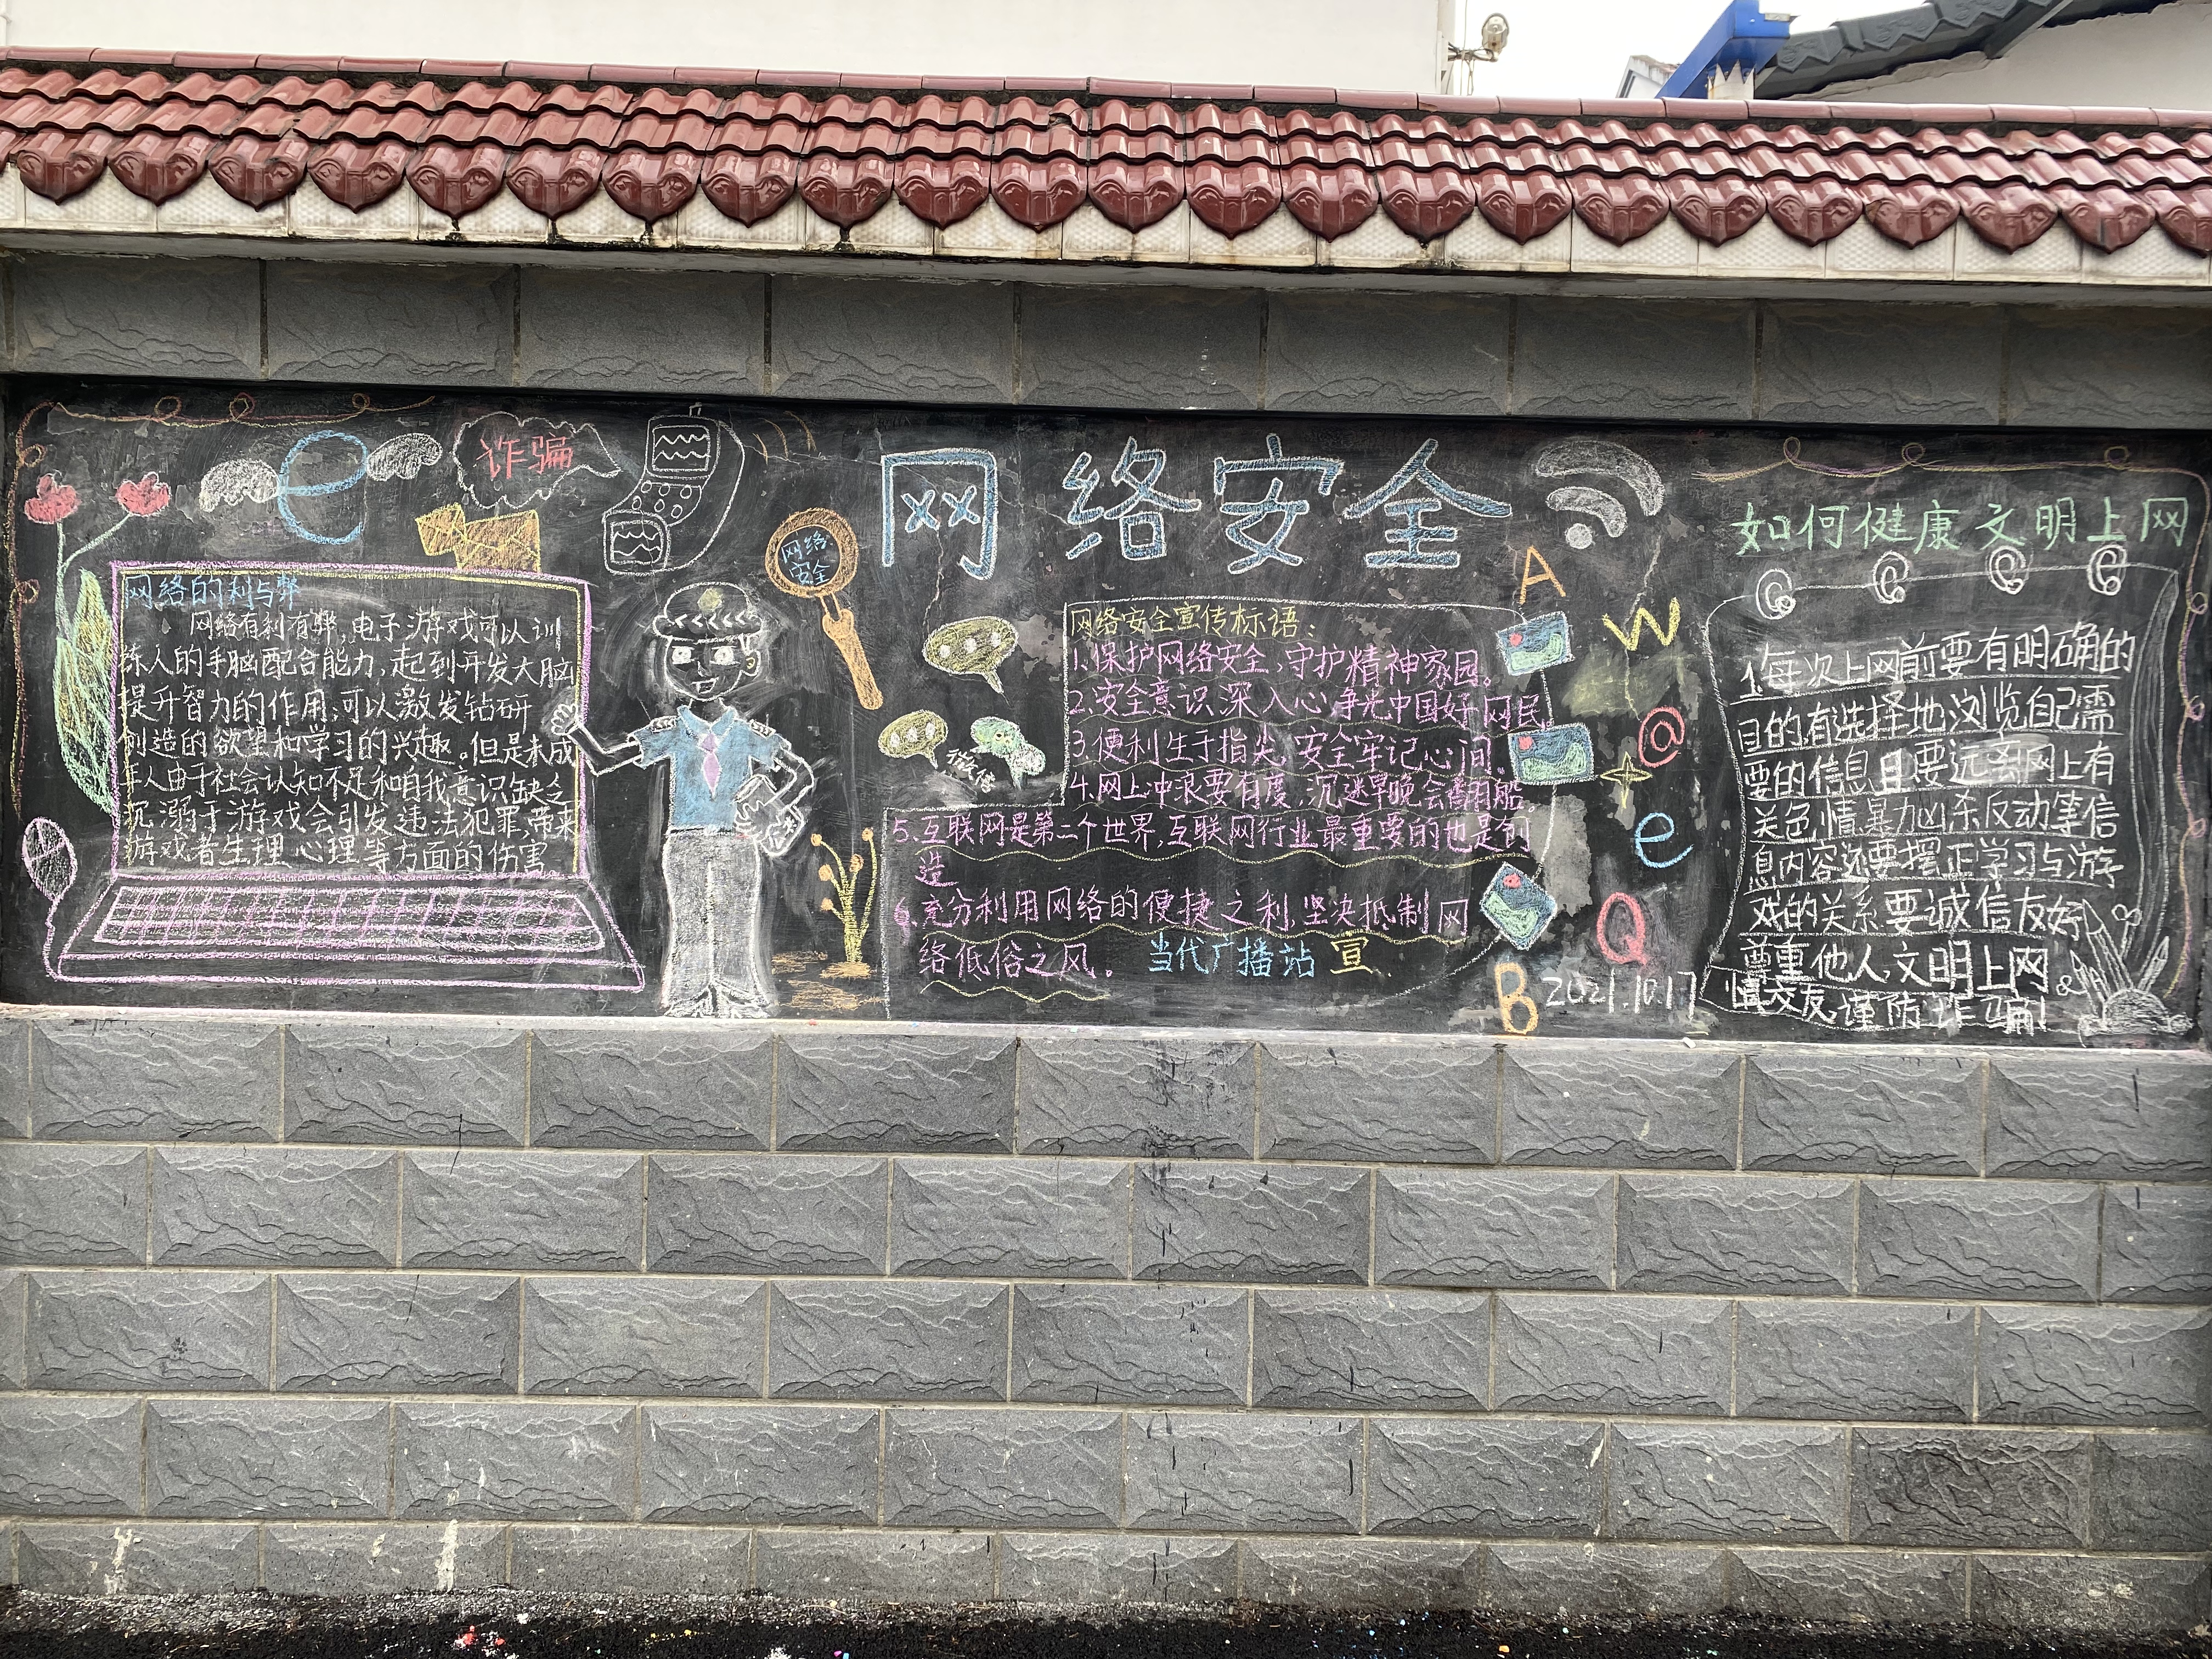 诈骗
网络安全
网络
安全
网络的利与弊
网络有利有弊,电子游戏可以训
练人的手脑配合能力,起到开发大脑
提升智力的作用,可以激发钻研
创造的欲望和学习的兴趣。但是未成
年人由于社会认知不足和自我意识缺乏
沉溺于游戏会引发违法犯罪,带来
游戏者生理、心理等方面的伤害
微信
网络安全宣传标语:
1.保护网络安全,守护精神家园。
2.安全意识深入心争光中国好网民。
3.便利生于指尖,安全牢记心间.
4.网上冲浪要有度,沉迷早晚会翻船
5.互联网是第二个世界,互联网行业最重要的也是创
造
6.充分利用网络的便捷之利,坚决抵制网
络低俗之风。
当代广播站 宣
A
W
@
e
Q
B
2021.10.17
如何健康文明上网
1.每次上网前要有明确的
目的有选择地浏览自己需
要的信息且要远离网上有
关色情暴力凶杀反动等信
息内容还要摆正学习与游
戏的关系要诚信友好
尊重他人,文明上网
慎交友,谨防诈骗!